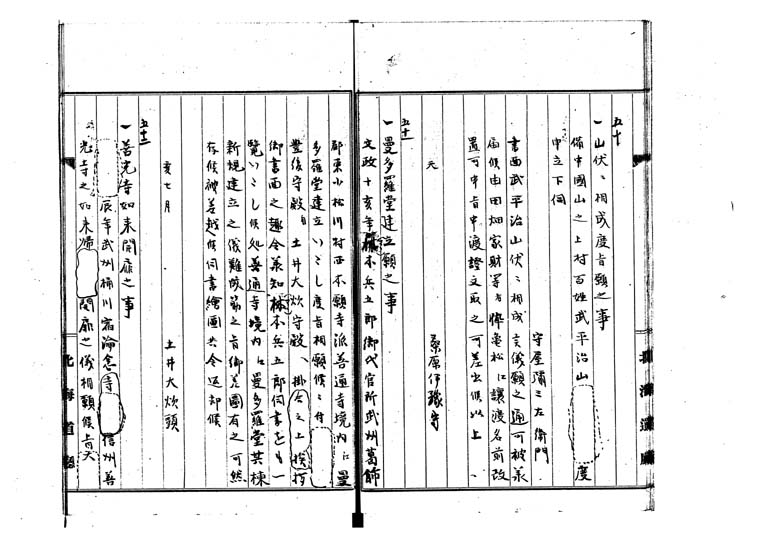 五十
一 山伏ニ相成度旨願之事
備中國山之上村百姓武平治山　　度
申立下伺
守屋彌三左衛門
書面武平治山伏ニ相成候儀願之通可被承
届候由田畑家財等者悴亀松江譲渡名前改
置可申旨申渡證文取之可差出候以上
六
桑原伊豫守
五十一
一 曼多羅堂建立願之事
文政十亥年榛本兵五郎御代官所武州葛飾
郡東小松川村西本願寺派善通寺境内江曼
多羅堂建立いたし度旨相願候ニ付
豊後守殿 土井大炊守殿 掛合之上挨拶
御書面之趣令承知榛本兵五郎伺書壱冊一
覧いたし候処善通寺境内江曼多羅堂其棟
新規建立之儀難成筋之旨御差圖有之可然
存候被差越候伺書繪圖共令返却候
亥七月
土井大炊頭
五十二
一 善光寺如来開扉之事
辰年武州桶川宿浄念寺　信州善
光寺之如来帰　開扉之儀相願候旨大
北海道廳